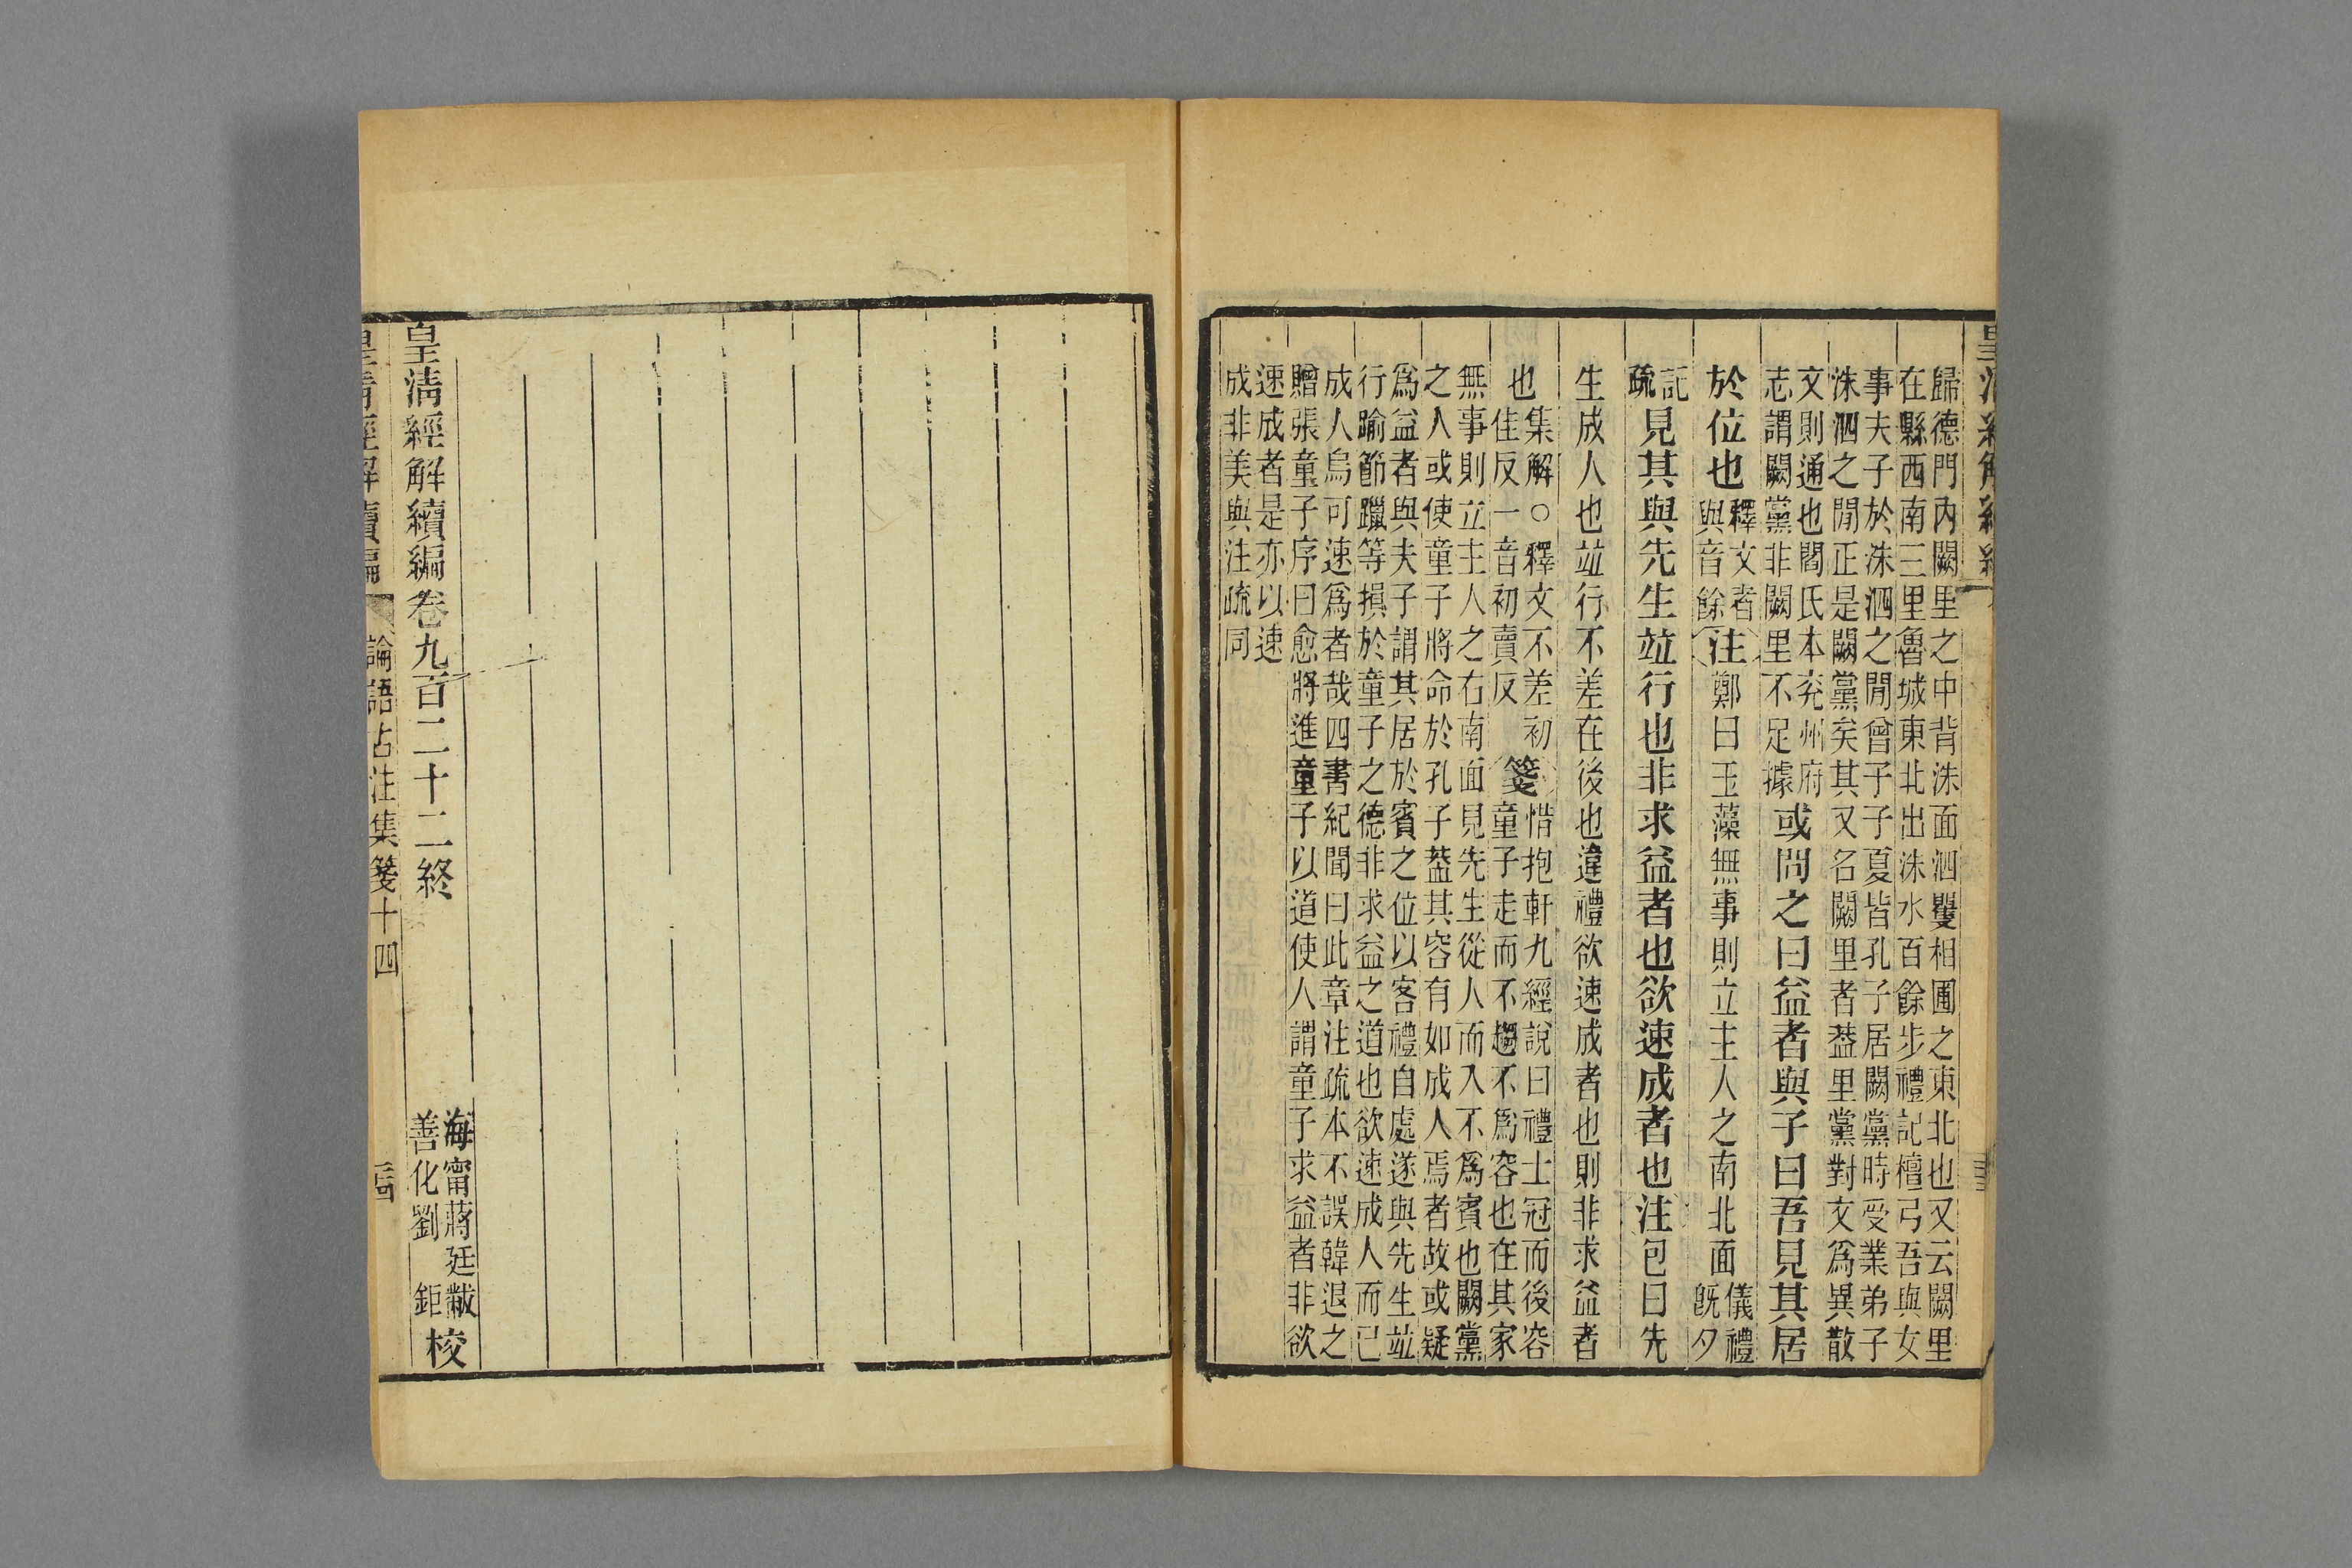 歸德門內闕里之中背洙面泗矍相圃之東北也又云闕里
在縣西南三里魯城東北出洙水百餘步禮記檀弓吾與女
事夫子於洙泗之閒曾子子夏皆孔子居闕黨時受業弟子
洙泗之閒正是闕黨矣其又名闕里者葢里黨對文爲異散
文則通也閻氏本兖州府
志謂闕黨非闕里不足據
或問之曰益者與子曰吾見其居
於位也
釋文者
與音餘
注鄭曰玉藻無事則立主人之南北面
儀禮
旣夕
記
疏
見其與先生竝行也非求益者也欲速成者也注包曰先
生成人也竝行不差在後也違禮欲速成者也則非求益者
也
集解○釋文不差初
佳反一音初賣反
箋
惜抱軒九經說曰禮士冠而後容
童子走而不趨不爲容也在其家
無事則立主人之右南面見先生從人而入不爲賓也闕黨
之人或使童子將命於孔子葢其容有如成人焉者故或疑
爲益者與夫子謂其居於賓之位以客禮自處遂與先生竝
行踰節躐等損於童子之德非求益之道也欲速成人而已
成人烏可速爲者哉四書紀聞曰此章注疏本不誤韓退之
贈張童子序曰愈將進童子以道使人謂童子求益者非欲
速成者是亦以速
成非美與注疏同
皇清經解續編卷九百二十二終
海甯蔣廷黻
善化劉鉅
校
皇清經解續編
論語古注集箋十四